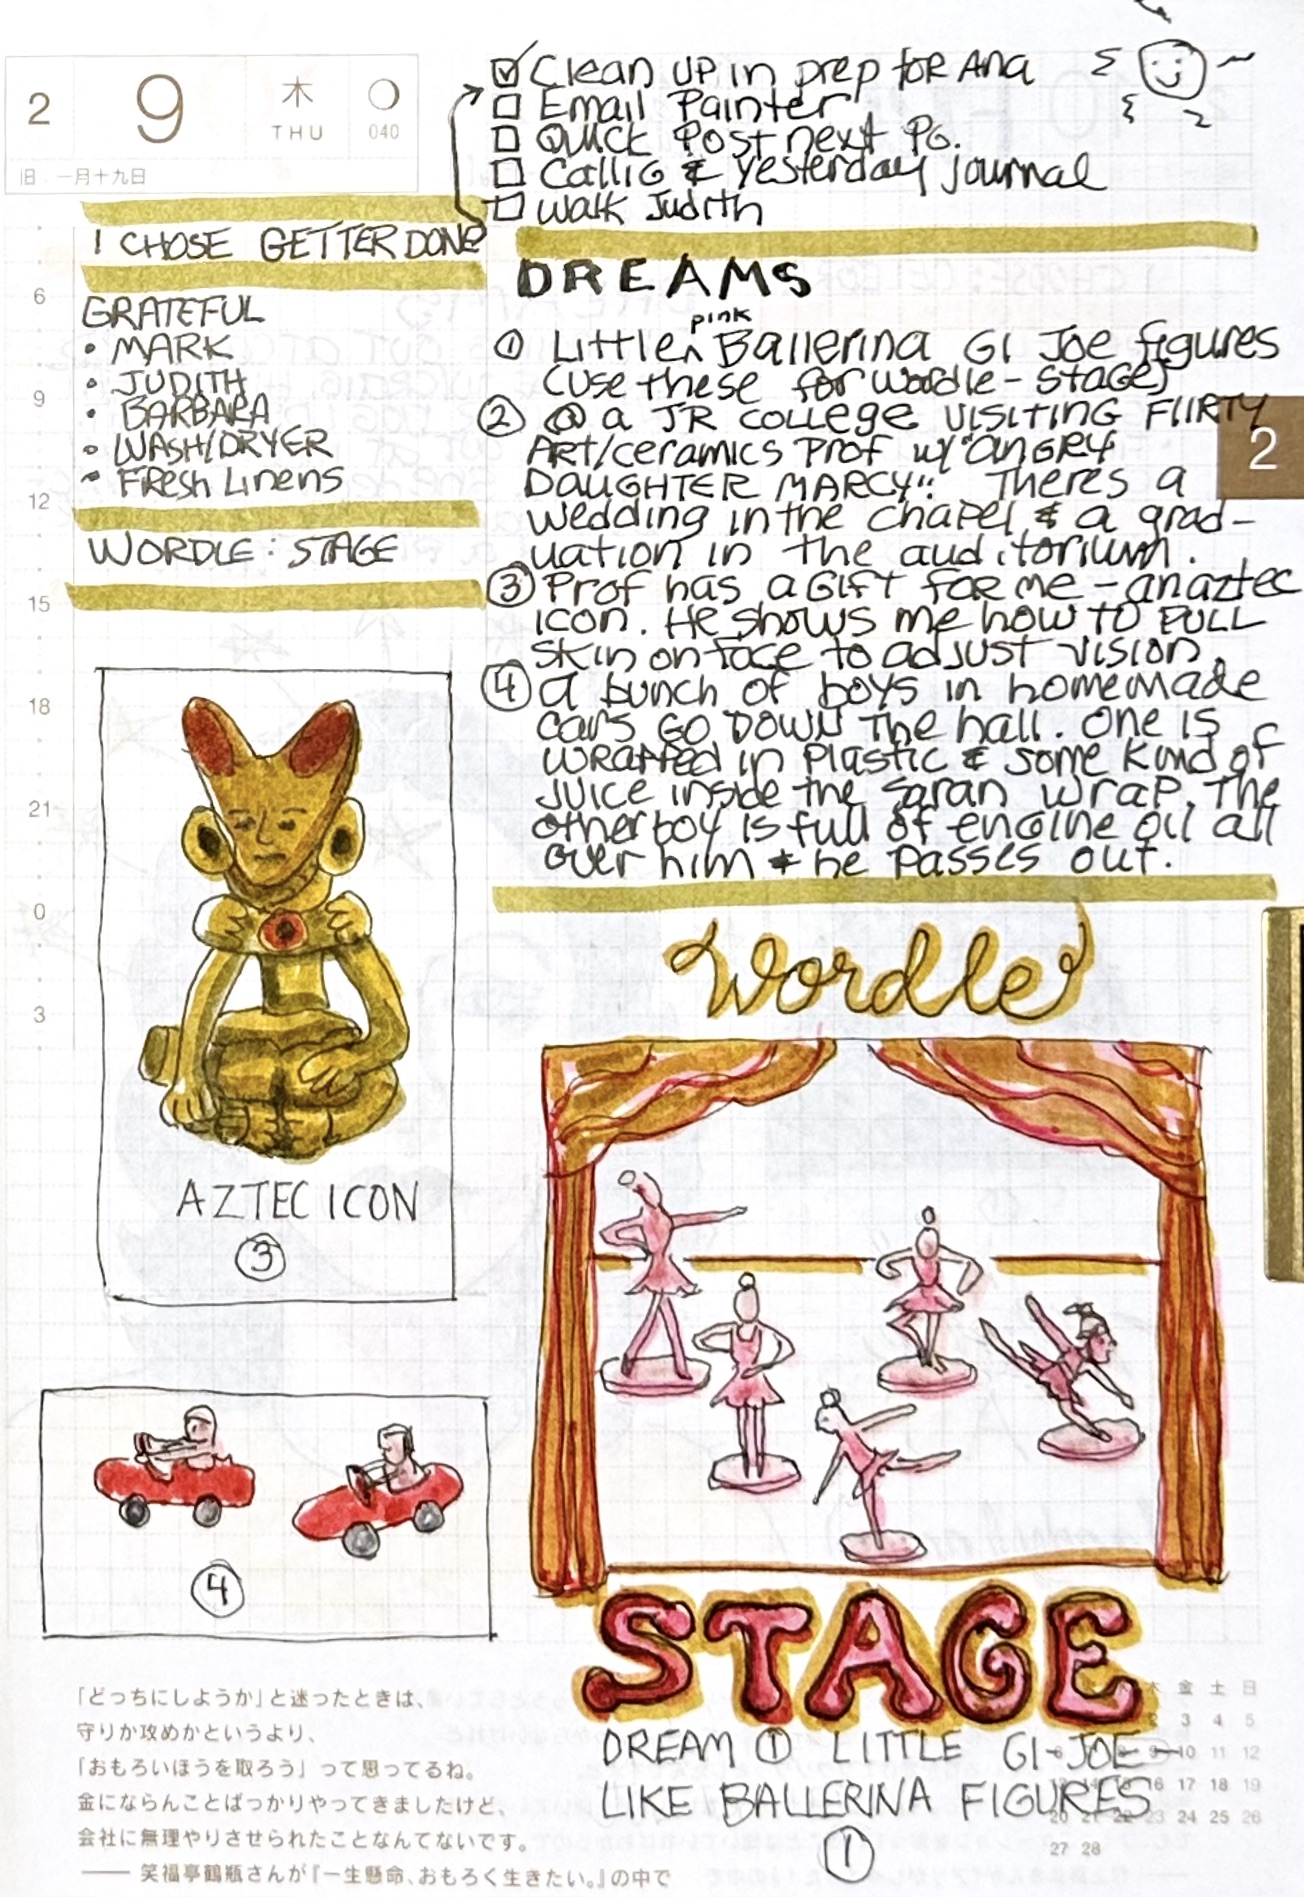 2
9
木
THU
040
旧:一月十九日
Clean up in prep for Ana
Email Painter
Quick Post next PG.
Callig & yesterday journal
Walk Judith
I CHOSE GETTER DONE
GRATEFUL
• MARK
• JUDITH
• BARBARA
• WASH/DRYER
• FResh Linens
WORDLE: STAGE
6
9
12
15
18
21
0
3
DREAMS
pink
① Little ^ Ballerina GI Joe figures
(use these for wordle - stage)
② @ a JR college visiting FlIRTY
ART/ceramics Prof w/ "angry
DAUGHTER MARCY!" There's a
wedding in the chapel & a grad-
uation in the auditorium.
③ Prof has a Gift for me - an aztec
icon. He shows me how to PULL
skin on face to adjust vision.
④ a bunch of boys in homemade
cars go down the hall. One is
wrapped in plastic & some kind of
juice inside the saran wrap. The
other boy is full of engine oil all
over him & he passes out.
2
Wordle
AZTEC ICON
③
④
STAGE
DREAM ① LITTLE GI-JOE-
LIKE BALLERINA FIGURES
①
「どっちにしようか」と迷ったときは、
守りか攻めかというより、
「おもろいほうを取ろう」って思ってるね。
金にならんことばっかりやってきましたけど、
会社に無理やりさせられたことなんてないです。
—— 笑福亭鶴瓶さんが『一生懸命、おもろく生きたい。』の中で
木 金 土 日
2 3 4 5
6 8 9 10 11 12
13 14 15 16 17 18 19
20 21 22 23 24 25 26
27 28